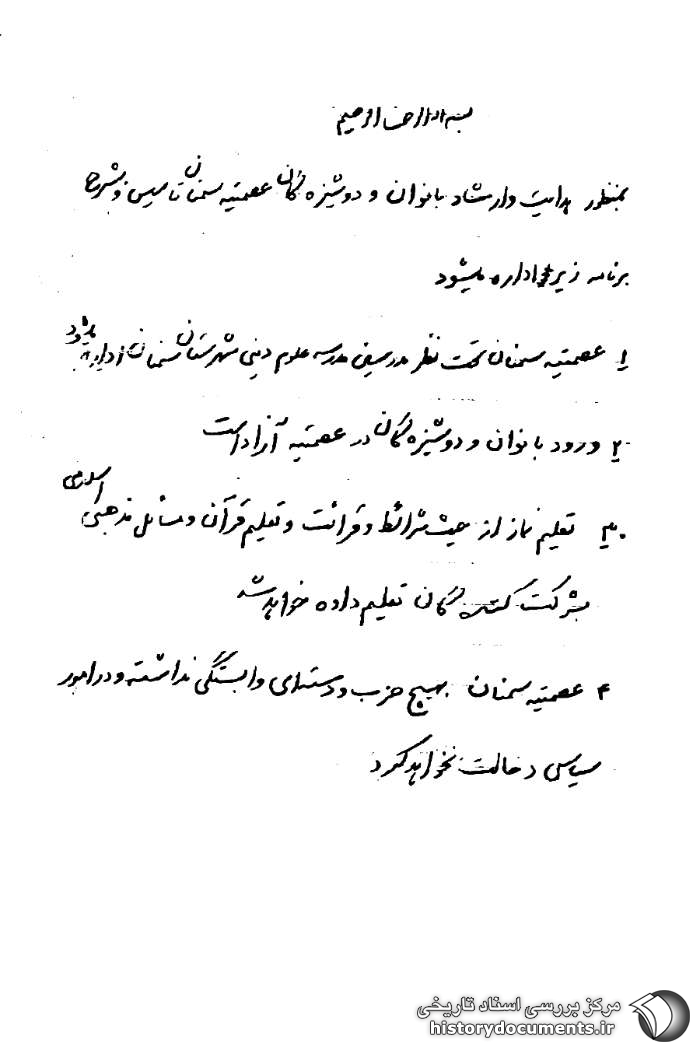 بسم الله الرحمن الرحیم
بمنظور هدایت و ارشاد بانوان و دوشیزه گان عصمتیه سمنان تاسیس و بشرح
برنامه زیر اداره میشود
۱ عصمتیه سمنان تحت نظر مدرسین مدرسه علوم دینی شهرستان سمنان اداره میشود
۲ ورود بانوان و دوشیزه گان در عصمتیه آزاد است
۳ تعلیم نماز از حیث شرائط و قرائت و تعلیم قرآن و مسائل مذهبی اسلامی
بشرکت کننده گان تعلیم داده خواهد شد
۴ عصمتیه سمنان بهیچ حزب و دسته‌ای وابستگی نداشته و در امور
سیاسی دخالت نخواهد کرد
مرکز بررسی اسناد تاریخی
historydocuments.ir